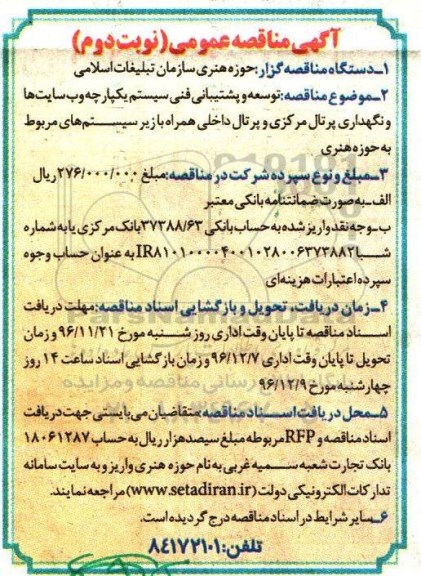 آگهی مناقصه عمومی (نوبت دوم)
۱ـ دستگاه مناقصه گزار: حوزه هنری سازمان تبلیغات اسلامی
۲ـ موضوع مناقصه: توسعه و پشتیبانی فنی سیستم یکپارچه وب سایت‌ها
و نگهداری پرتال مرکزی و پرتال داخلی همراه با زیر سیستم‌های مربوط
به حوزه هنری
۳ـ مبلغ و نوع سپرده شرکت در مناقصه: مبلغ ۲۷۶/۰۰۰/۰۰۰ ریال
الف ـ به صورت ضمانتنامه بانکی معتبر
ب ـ وجه نقد واریز شده به حساب بانکی ۳۷۳۸۸/۶۳ بانک مرکزی یا به شماره
شبا IR۸۱۰۱۰۰۰۰۴۰۰۱۰۲۸۰۰۶۳۷۳۸۸۲ به عنوان حساب وجوه
سپرده اعتبارات هزینه‌ای
۴ـ زمان دریافت، تحویل و بازگشایی اسناد مناقصه: مهلت دریافت
اسناد مناقصه تا پایان وقت اداری روز شنبه مورخ ۹۶/۱۱/۲۱ و زمان
تحویل تا پایان وقت اداری ۹۶/۱۲/۷ و زمان بازگشایی اسناد ساعت ۱۴ روز
چهارشنبه مورخ ۹۶/۱۲/۹
۵ـ محل دریافت اسناد مناقصه: متقاضیان می‌بایستی جهت دریافت
اسناد مناقصه و RFP مربوطه مبلغ سیصد هزار ریال به حساب ۱۸۰۶۱۲۸۷
بانک تجارت شعبه سمیه غربی به نام حوزه هنری واریز و به سایت سامانه
تدارکات الکترونیکی دولت (www.setadiran.ir) مراجعه نمایند.
۶ـ سایر شرایط در اسناد مناقصه درج گردیده است.
تلفن: ۸۴۱۷۲۱۰۱